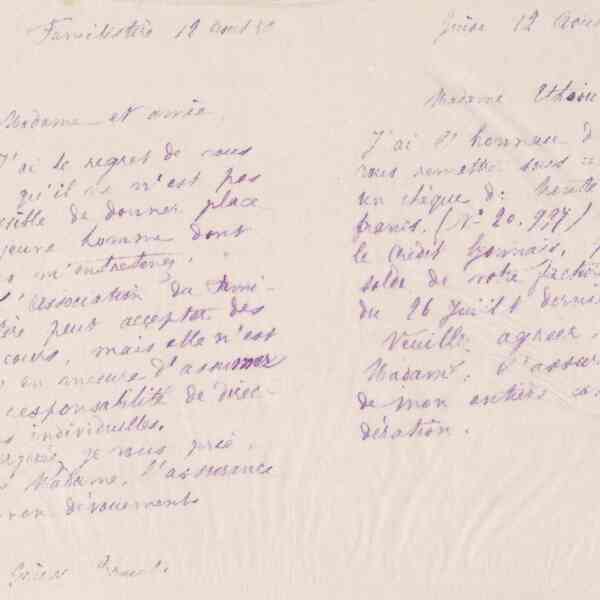 Familistère 12 août 80
Madame et amie,
J'ai le regret de vous
qu'il ne m'est pas
de donner place
jeune homme dont
m'entretenez.
L'association du Fami-
peut accepter des
cours, mais elle n'est
en mesure d'assumer
responsabilité de direc-
individuelles.
je vous prie,
Madame, l'assurance
mon dévouement
Godin
Guise 12 août
Madame
J'ai l'honneur d
vous remettre sous
un chèque de trente
francs, (N° 20.997)
le Crédit Lyonnais,
solde de votre factu
du 26 Juillet derni
Veuillez agréer,
Madame, l'assur
de mon entière con
dération.